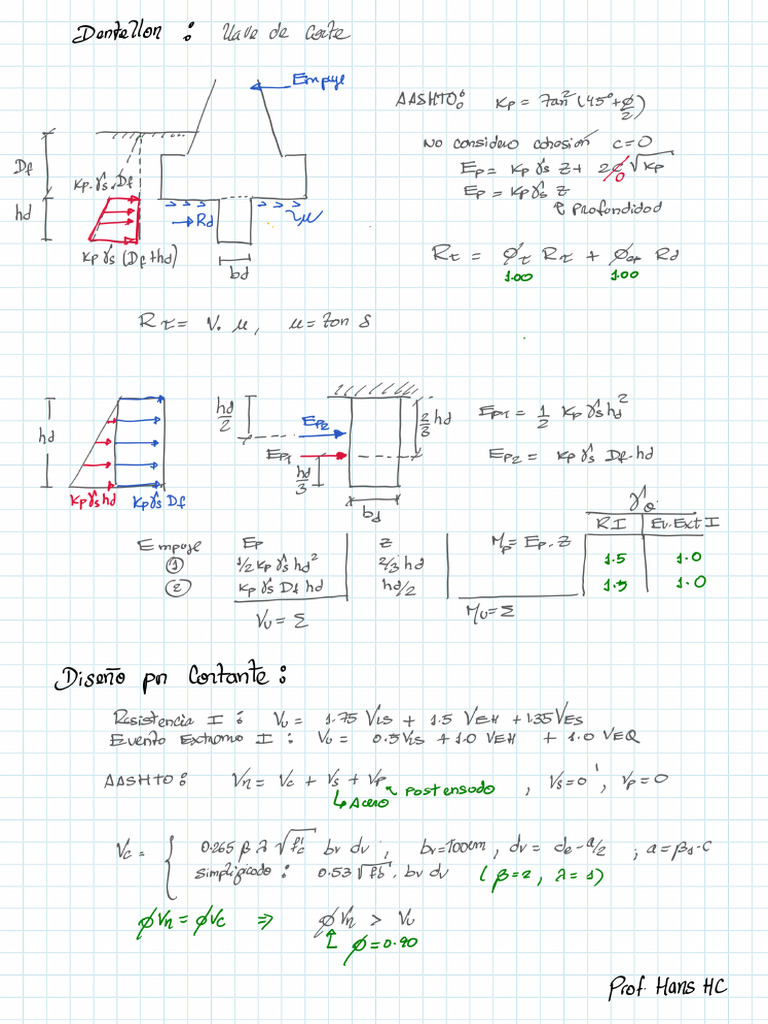 Dentellon : Llave de Corte
Empuje
AASHTO: Kp = Tan²(45°+ø/2)
No considero cohesión c=0
Ep = Kp γs z + 2c√Kp
0
Ep = Kp γs z
↑ Profundidad
Df
hd
Kp.γs.Df
Kp γs (Df+hd)
→ Rd
μ
bd
Rτ = φτ Rτ + φep Rd
1.00 1.00
Rτ = V. μ, μ = tan δ
hd
Kp γs hd
Kp γs Df
hd/2
Ep2
Ep1
hd/3
2/3 hd
bd
Ep1 = 1/2 Kp γs hd²
Ep2 = Kp γs Df.hd
γo
Empuje Ep z Mp = Ep.z RI Ev.Ext I
① 1/2 Kp γs hd² 2/3 hd 1.5 1.0
② Kp γs Df hd hd/2 1.5 1.0
Vu = Σ Mu = Σ
Diseño por Cortante :
Resistencia I : Vu = 1.75 VLS + 1.5 VEH + 1.35 VES
Evento Extremo I : Vu = 0.5 VLS + 1.0 VEH + 1.0 VEQ
AASHTO : Vn = Vc + Vs + Vp , Vs=0 , Vp=0
↳ Acero
Postensado
Vc = { 0.265 β λ √f'c bv dv ; bv=100cm , dv = de - a/2 ; a = β1.c
simplificado : 0.53 √f'c . bv dv (β=2, λ=1)
φVn = φVc ⇒ φVn > Vu
φ=0.90
Prof. Hans HC